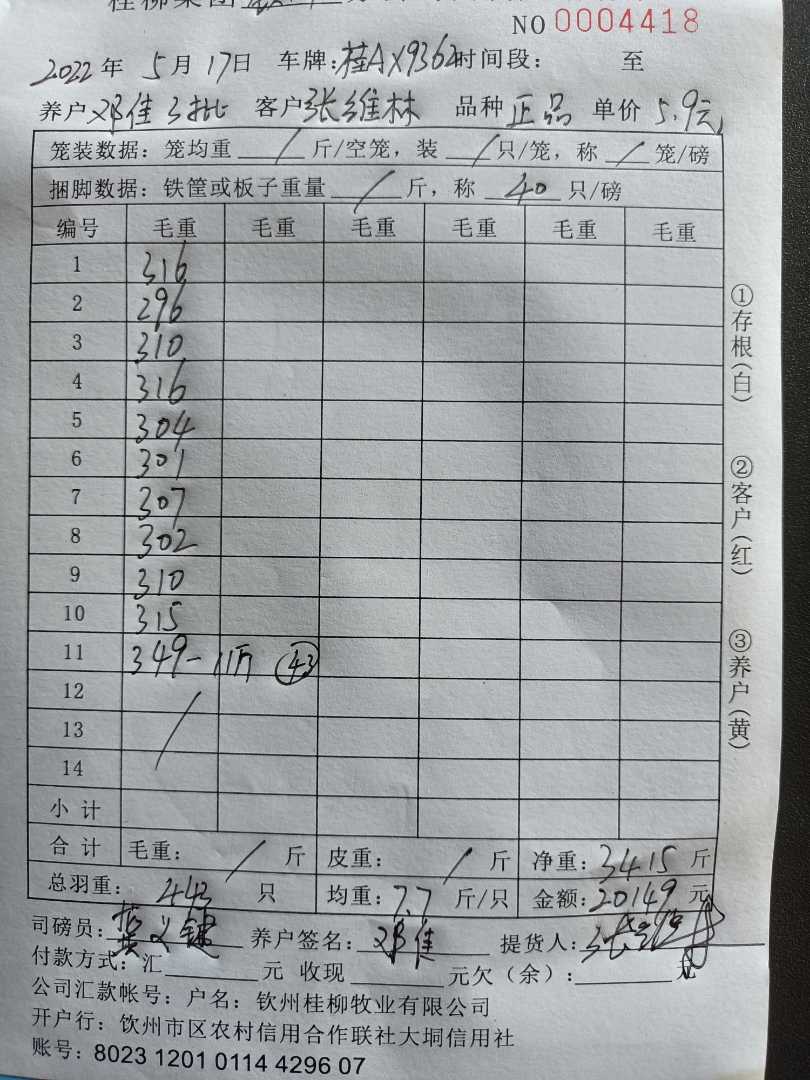 桂柳集团
NO 0004418
2022 年 5 月 17 日 车牌:桂AX9362 时间段: 至
养户 邓佳 3批 客户 张维林 品种 正品 单价 5.9元
笼装数据: 笼均重 / 斤/空笼, 装 / 只/笼, 称 / 笼/磅
捆脚数据: 铁筐或板子重量 / 斤, 称 40 只/磅
编号 毛重 毛重 毛重 毛重 毛重 毛重
1 316
2 296
3 310
4 316
5 304
6 301
7 307
8 302
9 310
10 315
11 349-11斤 43
12 /
13
14
小计
合计 毛重: / 斤 皮重: / 斤 净重: 3415 斤
总羽重: 443 只 均重: 7.7 斤/只 金额: 20149 元
司磅员: 养户签名: 邓佳 提货人:
付款方式: 汇 元 收现 元欠(余): 元
公司汇款帐号: 户名: 钦州桂柳牧业有限公司
开户行: 钦州市区农村信用合作联社大垌信用社
账号: 8023 1201 0114 4296 07
①存根(白)
②客户(红)
③养户(黄)